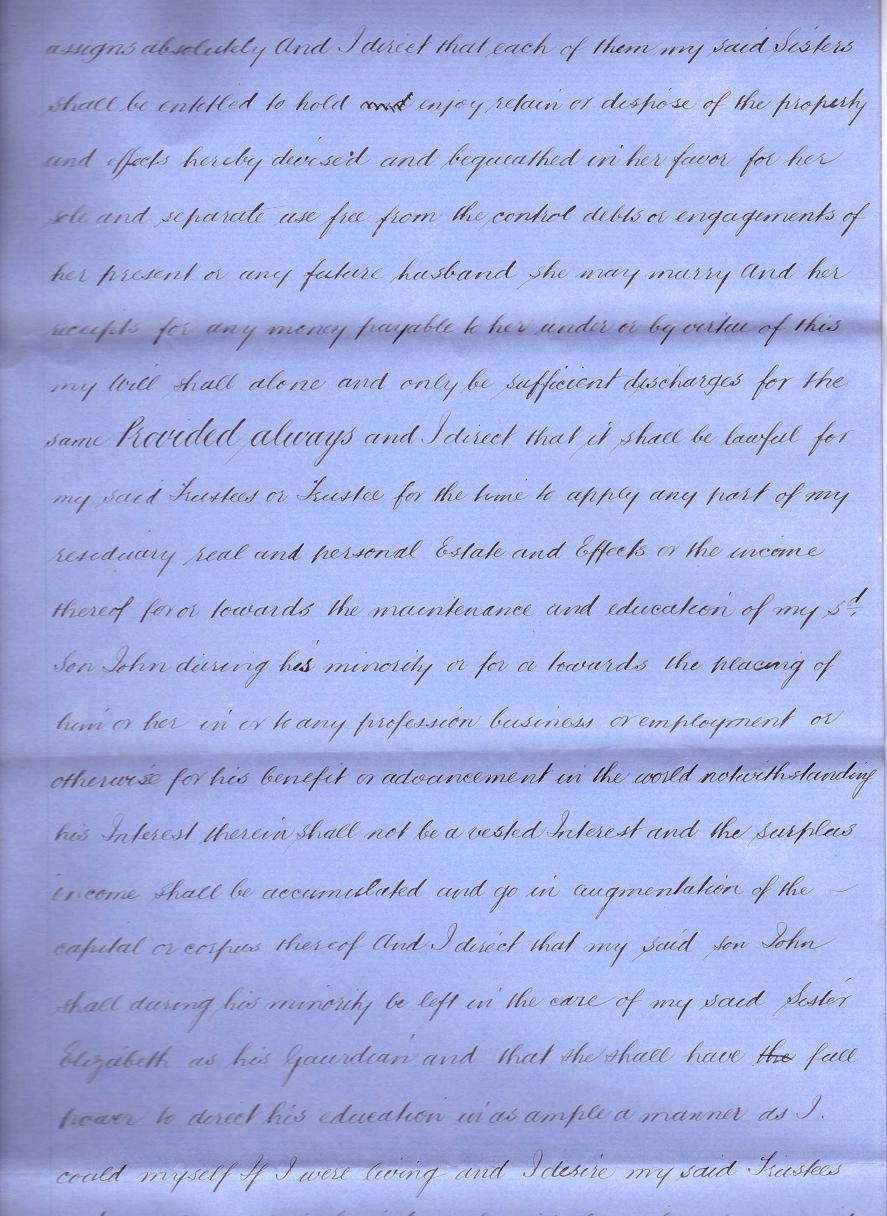 assigns absolutely And I direct that each of them my said Sisters
shall be entitled to hold and enjoy retain or dispose of the property
and effects hereby devised and bequeathed in her favor for her
sole and separate use free from the control debts or engagements of
her present or any future husband she may marry And her
receipts for any money payable to her under or by virtue of this
my Will shall alone and only be sufficient discharges for the
same Provided always and I direct that it shall be lawful for
my said Trustees or Trustee for the time to apply any part of my
residuary real and personal Estate and Effects or the income
thereof for or towards the maintenance and education of my sd.
Son John during his minority or for a towards the placing of
him or her in or to any profession business or employment or
otherwise for his benefit or advancement in the world notwithstanding
his Interest therein shall not be a vested Interest and the surplus
income shall be accumulated and go in augmentation of the
capital or corpus thereof And I direct that my said son John
shall during his minority be left in the care of my said Sister
Elizabeth as his Gaurdian and that she shall have the full
power to direct his education in as ample a manner as I
could myself If I were living and I desire my said Trustees